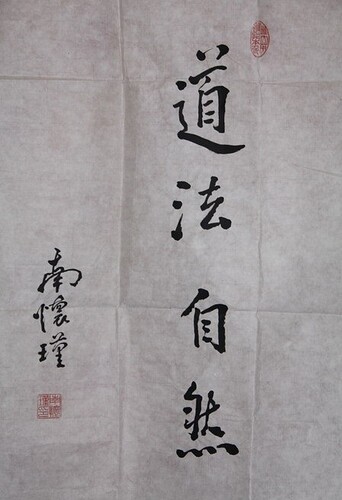 道法自然
南懷瑾